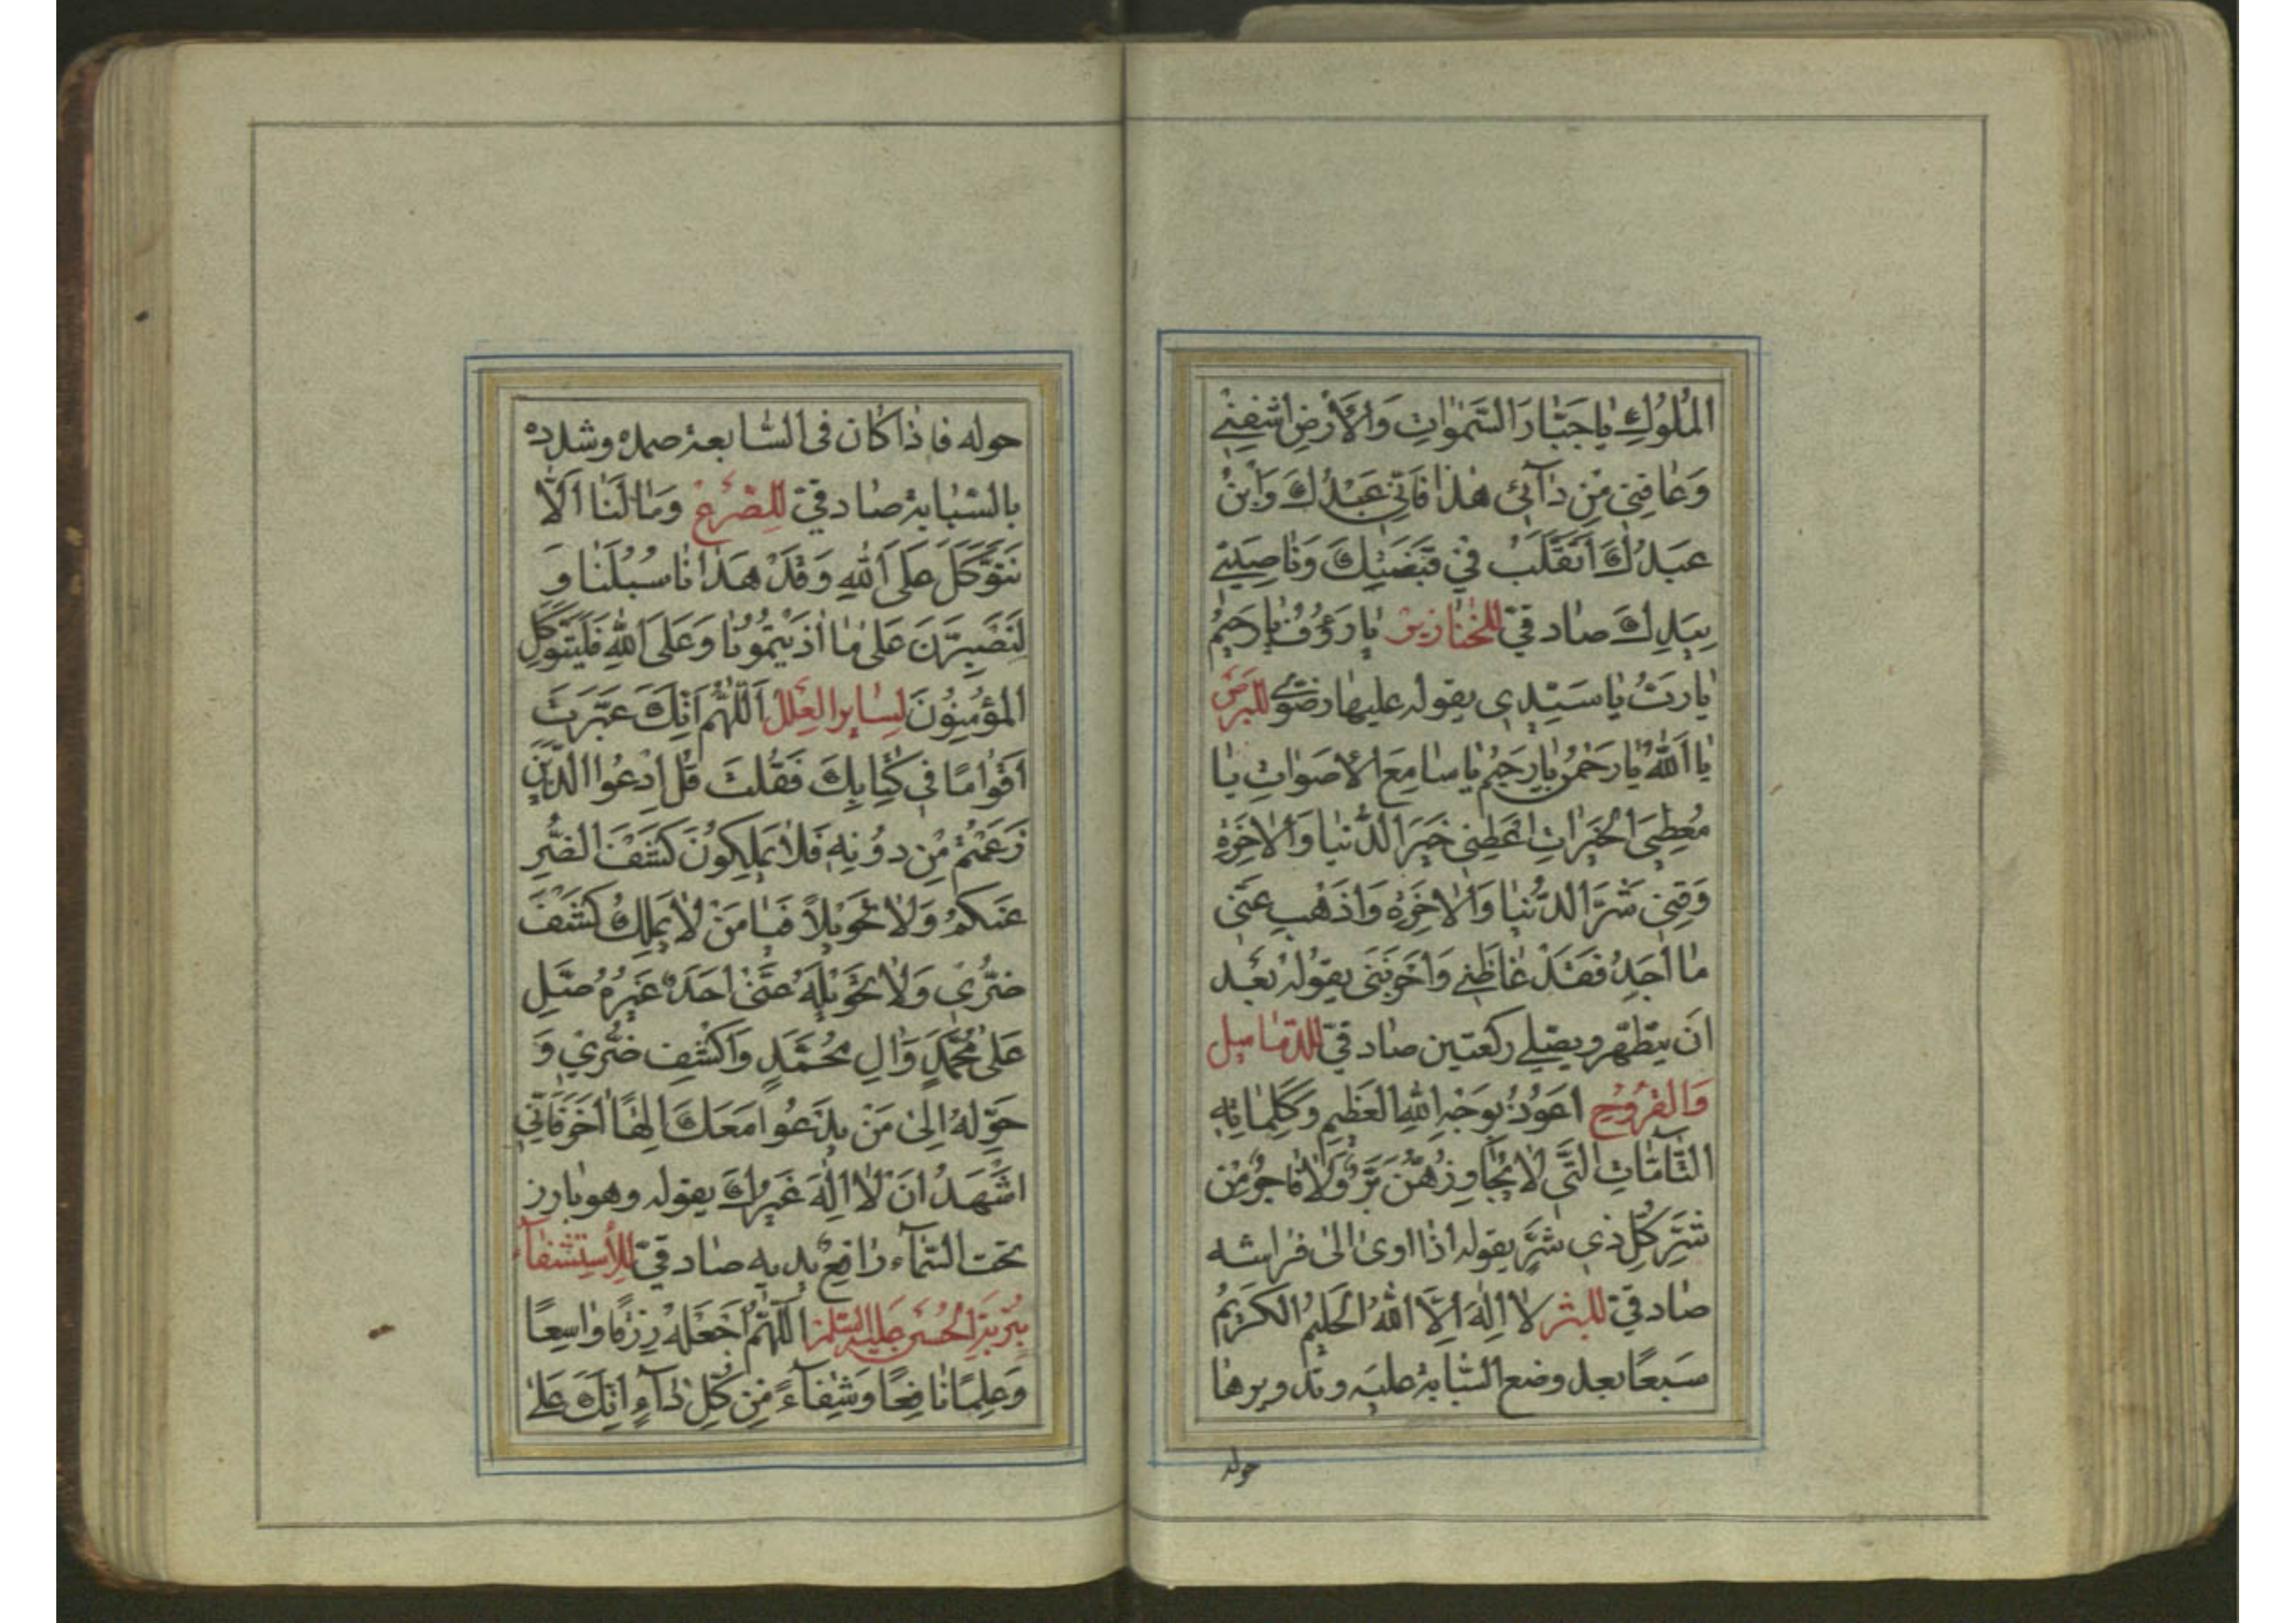 الْمُلُوكِ يٰا جَبّٰارَ السَّمٰوٰاتِ وَالْأَرْضِ اشْفِنِي
وَعٰافِنِي مِنْ دٰآئِي هٰذٰا فَاِنِّي عَبْدُكَ وَابْنُ
عَبْدِكَ اَتَقَلَّبُ فِي قَبْضَتِكَ وَنٰاصِيَتِي
بِيَدِكَ صٰادقيّ للخَنٰازير يٰا رَؤُفُ يٰا رَحِيمُ
يٰا رَبُّ يٰا سَيِّدِي يقوله عليها رضويّ للبَرَصِ
يٰا اَللّٰهُ يٰا رَحْمٰنُ يٰا رَحِيمُ يٰا سٰامِعَ الْاَصْوٰاتِ يٰا
مُعْطِيَ الْخَيْرٰاتِ اَعْطِنِي خَيْرَ الدُّنْيٰا وَالْاٰخِرَةِ
وَقِنِي شَرَّ الدُّنْيٰا وَالْاٰخِرَةِ وَاَذْهِبْ عَنِّي
مٰا اَجِدُ فَقَدْ غٰاظَنِي وَاَحْزَنَنِي يقوله بَعْد
اَن يتطهّر ويصلي ركعتين صٰادقيّ للدّمٰاميل
وَالقُرُوحِ اَعُوذُ بِوَجْهِ اللّٰهِ الْعَظِيمِ وَكَلِمٰاتِهِ
التّٰآمّٰاتِ الَّتِي لٰا يُجٰاوِزُهُنَّ بَرٌّ وَلٰا فٰاجِرٌ مِنْ
شَرِّ كُلِّ ذِي شَرٍّ يقوله اذٰا اوىٰ الىٰ فرٰاشه
صٰادقيّ للبثر لٰا اِلٰهَ اِلَّا اللّٰهُ الْحَلِيمُ الْكَرِيمُ
سَبعًا بعد وضع السّبّابة عليه وتدويرها
حوله
حوله فاذٰا كٰان في السّٰابعة صمده وشدده
بالسّبٰابة صٰادقيّ لِلصَّرْعِ وَمٰا لَنٰا اَلّٰا
نَتَوَكَّلَ عَلَى اللّٰهِ وَقَدْ هَدٰانٰا سُبُلَنٰا وَ
لَنَصْبِرَنَّ عَلىٰ مٰا اٰذَيْتُمُونٰا وَعَلَى اللّٰهِ فَلْيَتَوَكَّلِ
الْمُؤْمِنُونَ لِسٰايِر العِلَلِ اَللّٰهُمَّ اِنَّكَ عَيَّرْتَ
اَقْوٰامًا فِي كِتٰابِكَ فَقُلْتَ قُلِ ادْعُوا الَّذِينَ
زَعَمْتُمْ مِنْ دُونِهِ فَلٰا يَمْلِكُونَ كَشْفَ الضُّرِّ
عَنْكُمْ وَلٰا تَحْوِيلًا فَيٰا مَنْ لٰا يَمْلِكُ كَشْفَ
ضُرِّي وَلٰا تَحْوِيلَهُ عَنِّي اَحَدٌ غَيْرُهُ صَلِّ
عَلىٰ مُحَمَّدٍ وَاٰلِ مُحَمَّدٍ وَاكْشِفْ ضُرِّي وَ
حَوِّلْهُ اِلىٰ مَنْ يَدْعُوا مَعَكَ اِلٰهًا اٰخَرَ فَاِنِّي
اَشْهَدُ اَنْ لٰا اِلٰهَ غَيْرُكَ يقوله وهو بٰارز
تحت السّمٰآء رٰافع يديه صٰادقيّ لِلْاِسْتِشْفٰآءِ
بِتُرْبَةِ الْحُسَيْنِ عَلَيْهِ السَّلٰمُ اَللّٰهُمَّ اجْعَلْهُ رِزْقًا وٰاسِعًا
وَعِلْمًا نٰافِعًا وَشِفٰآءً مِنْ كُلِّ دٰآءٍ اِنَّكَ عَلىٰ